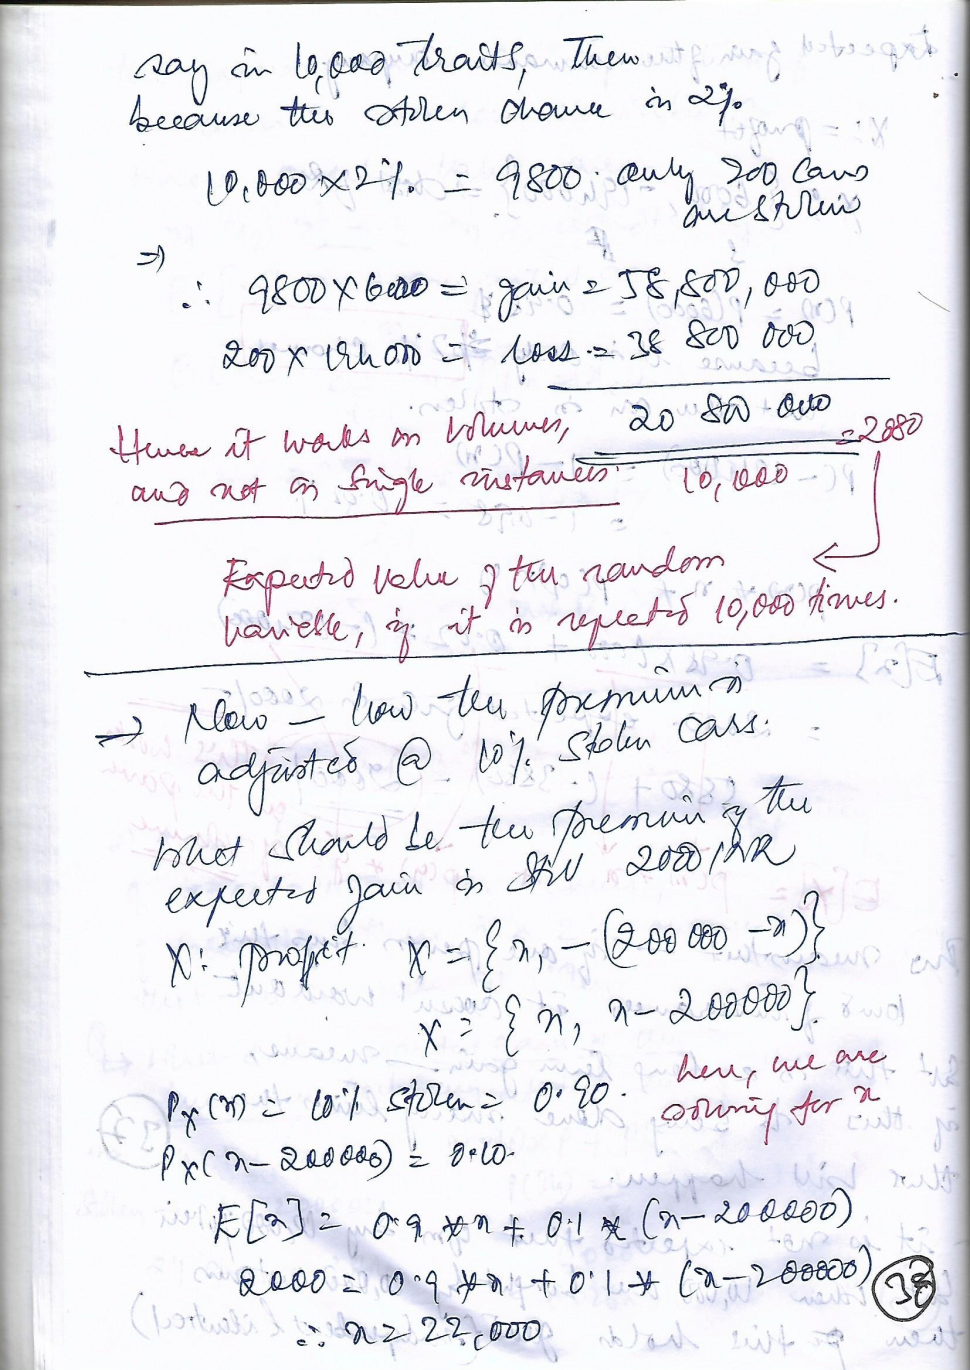 say in 10,000 traits, then
because the stolen chance is 2%.
10,000 × 2% = 9800. only 200 cars
are stolen
⇒
∴ 9800 × 6000 = gain = 58,800,000
200 × 194000 = loss = 38 800 000
20 800 000
Hence it works on volumes,
= 2080
and not on single instances.
10,000
Expected value of the random
variable, if it is repeated 10,000 times.
→ Now – how the premium is
adjusted @ 10% stolen cars.
what should be the premium if the
expected gain is still 2000 INR
X: profit. X = {x, -(200 000 - x)}
X = {x, x - 200000}.
here, we are
Px(x) = 10% stolen = 0.90.
solving for x
Px(x - 200000) = 0.10.
E[x] = 0.9 * x + 0.1 * (x - 200000)
2000 = 0.9 * x + 0.1 * (x - 200000)
∴ x = 22,000
38